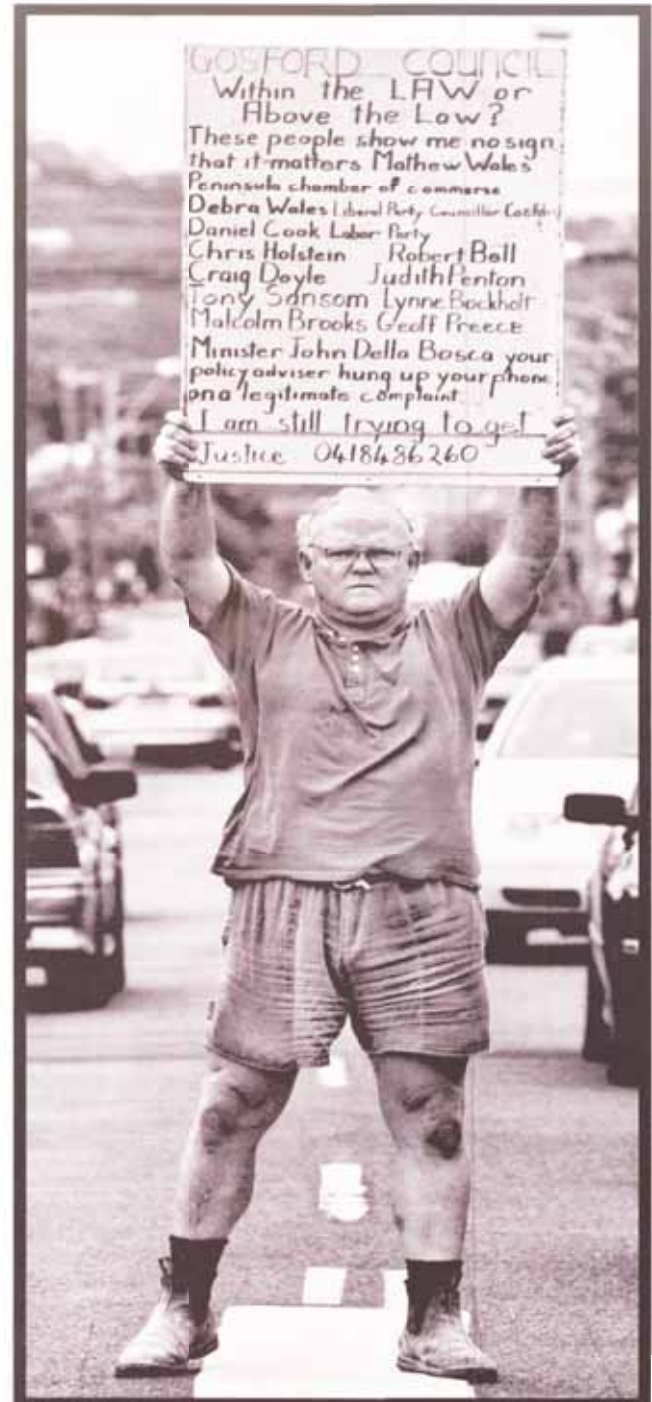 GOSFORD COUNCIL
Within the LAW or
Above the Law?
These people show me no sign
that it matters Mathew Wales
Peninsula chamber of commerse
Debra Wales Liberal Party Councillor
Daniel Cook Labor Party
Chris Holstein Robert Bell
Craig Doyle Judith Penton
Tony Sansom Lynne Bockholt
Malcolm Brooks Geoff Preece
Minister John Della Bosca your
policy adviser hung up your phone
on a legitimate complaint
I am still trying to get
Justice 0418486260